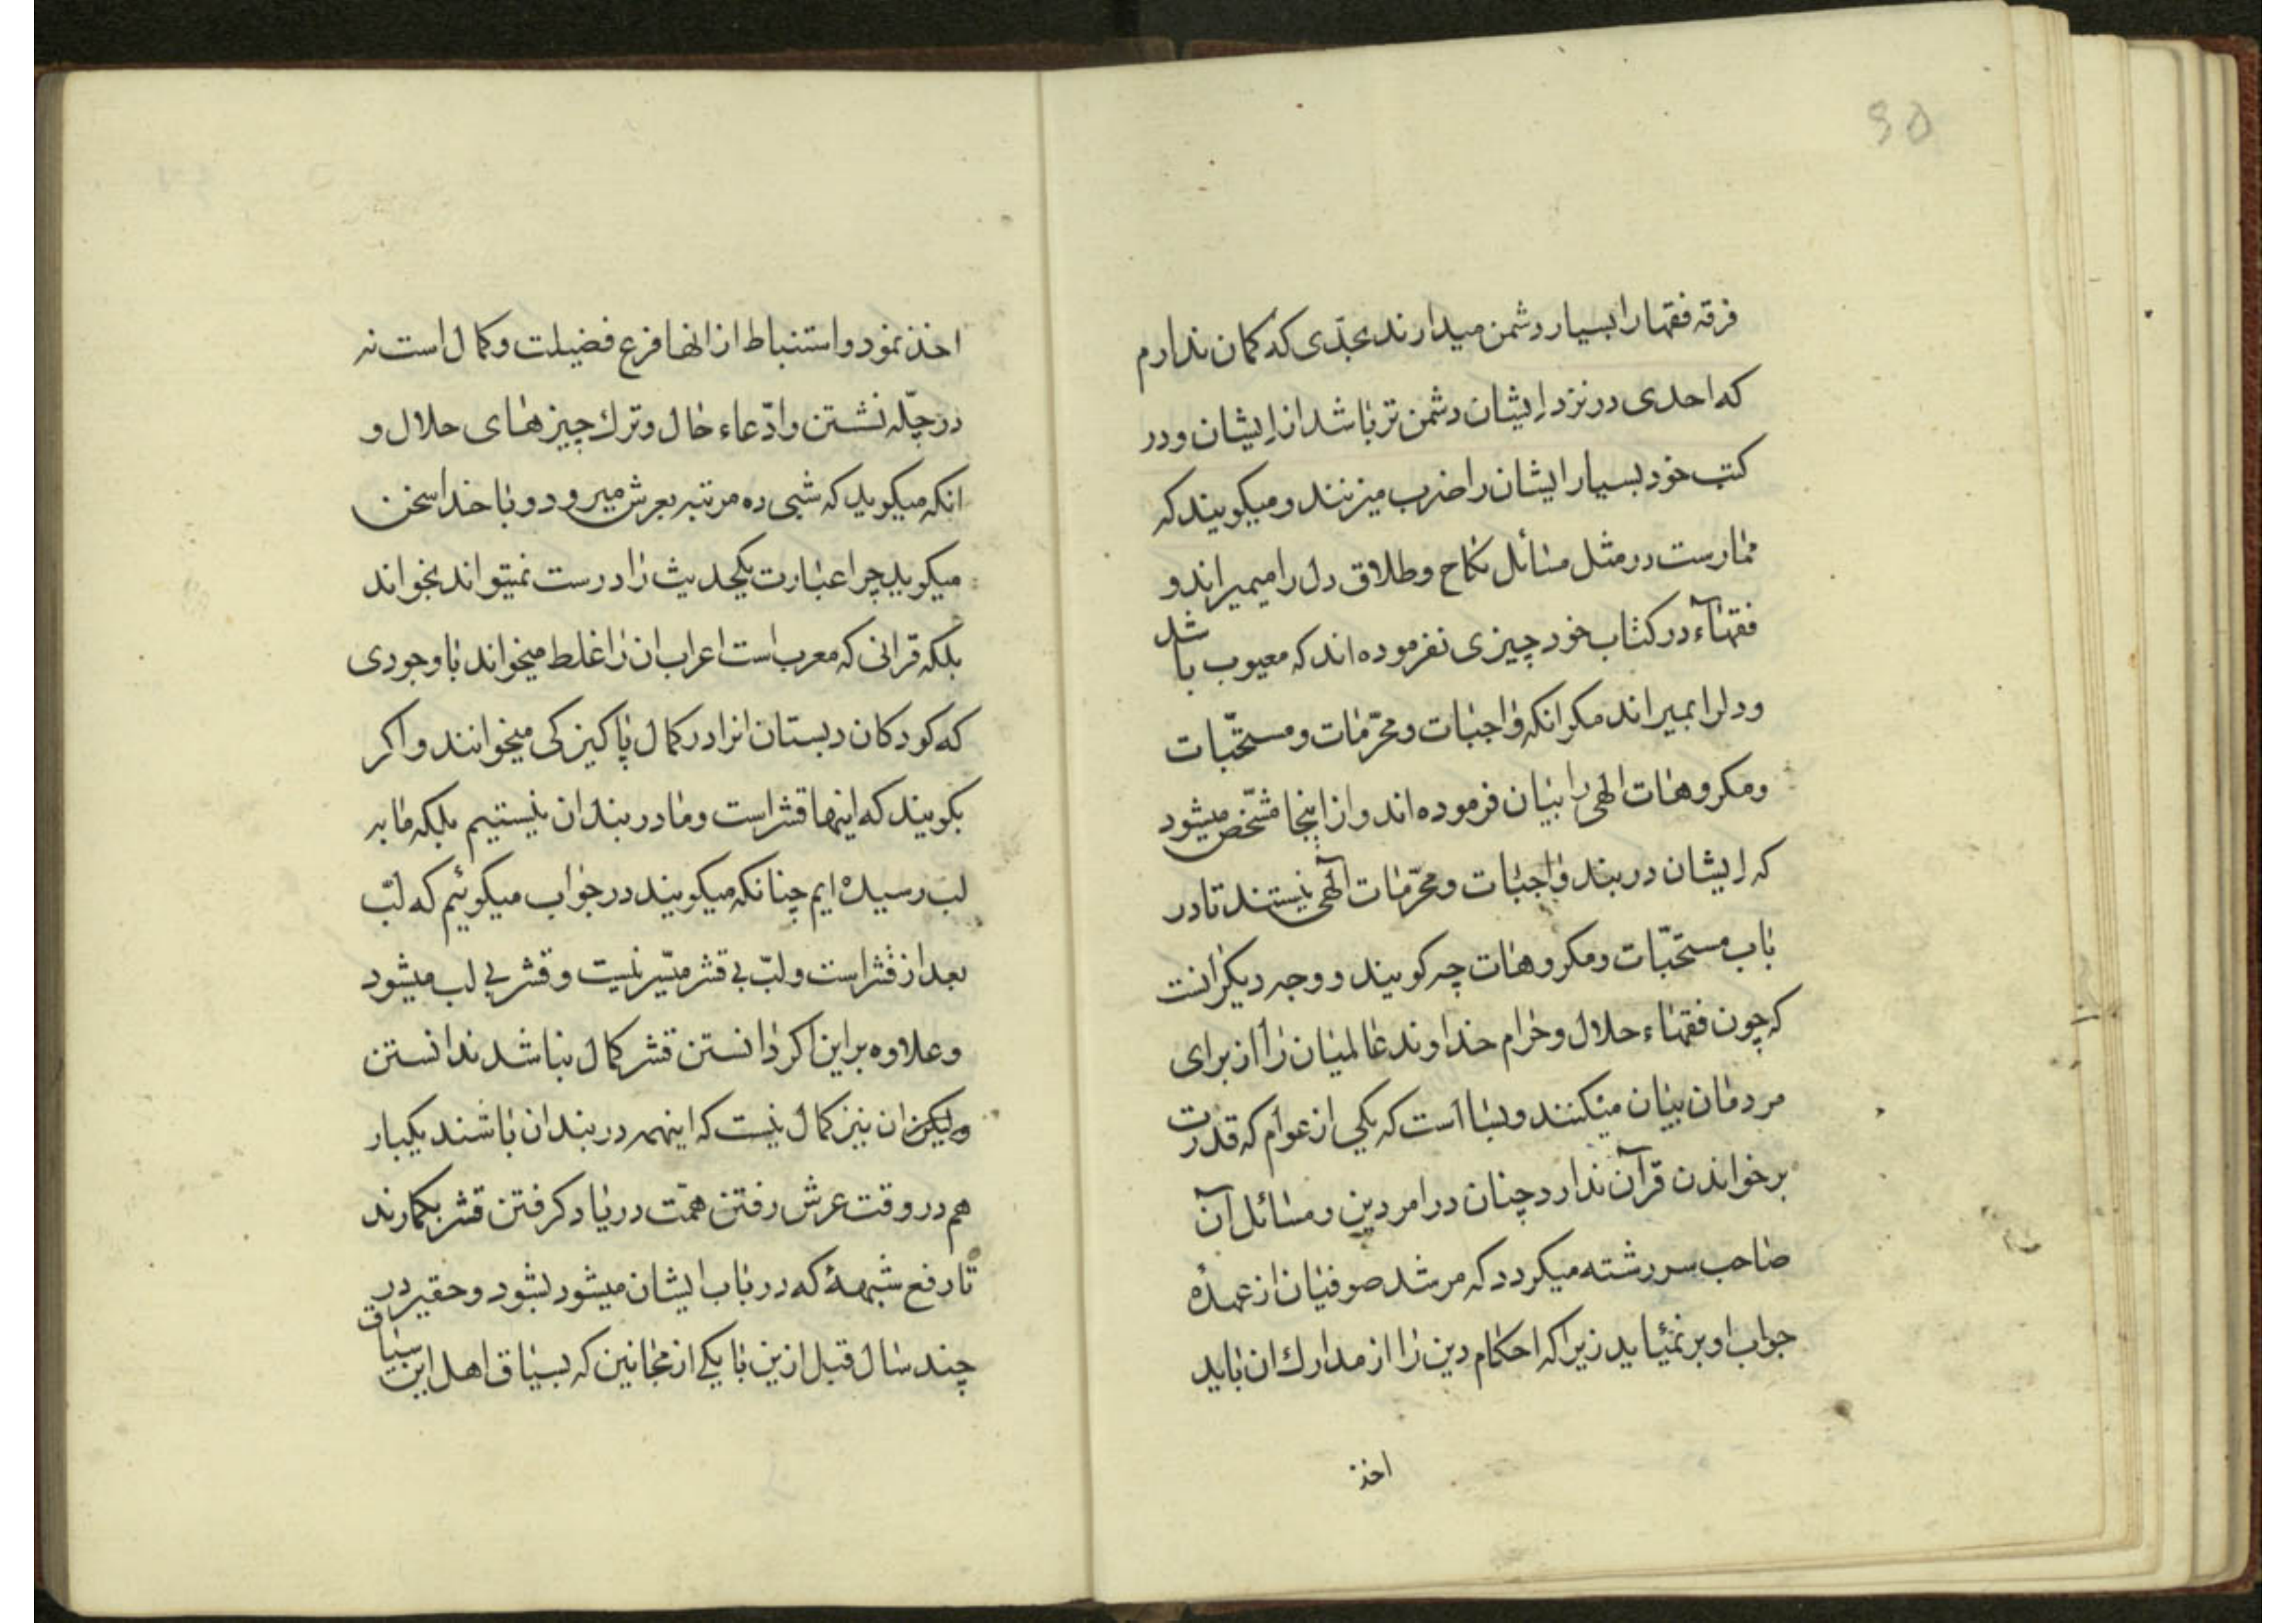 فرقه فقها را بسیار دشمن میدارند بحدّی که کمان ندارم
که احدی در نزد ایشان دشمن تر باشد از ایشان و در
کتب خود بسیار ایشان را ضرب میزنند و میکویند که
ممارست در مثل مسائل نکاح و طلاق دل را میمیراند و
فقهآء در کتاب خود چیزی نفرموده اند که معیوب باشد
و دلرا بمیراند مکر انکه واجبات و محرّمات و مستحبّات
و مکروهات الهی را بیان فرموده اند و از اینجا مشّخص میشود
که ایشان در بند واجبات و محرّمات آلهی نیستند تا در
باب مستحبّات و مکروهات چه کویند و وجه دیکر انست
که چون فقهاء حلال و حرام خداوند عالمیان را از برای
مردمان بیان میکنند و بسا است که یکی از عوام که قدرت
بر خواندن قرآن ندارد چنان در امر دین و مسائل آن
صاحب سررشته میکردد که مرشد صوفیان از عهدهٔ
جواب او بر نمیٔاید زیرا که احکام دین را از مدارك ان باید
اخذ
اخذ نمود و استنباط از انها فرع فضیلت و کمال است نه
در چلّه نشستن و ادّعاء حال و ترك چیزهای حلال و
انکه میکوید که شبی ده مرتبه بعرش میرود و با خدا سخن
میکوید چرا عبارت یکحدیث را درست نمیتواند بخواند
بلکه قرانی که معرب است اعراب ان را غلط میخواند با وجودی
که کودکان دبستان انرا در کمال پاکیزکی میخوانند و اکر
بکویند که اینها قشر است و ما در بند ان نیستیم بلکه ما به
لب رسیده ایم چنانکه میکویند در جواب میکوئیم که لبّ
بعد از قشر است و لبّ بی قشر میّسر نیست و قشر بی لب میشود
و علاوه بر این اکر دانستن قشر کمال نباشد ندانستن
ولیکن ان نیز کمال نیست که اینهمه در بند ان باشند یکبار
هم در وقت عرش رفتن همّت در یاد کرفتن قشر بکمارند
تا رفع شبههٔ که در باب ایشان میشود بشود و حقیر در
چند سال قبل ازین با یکی از مجانین که بسیاق اهل این سیاق